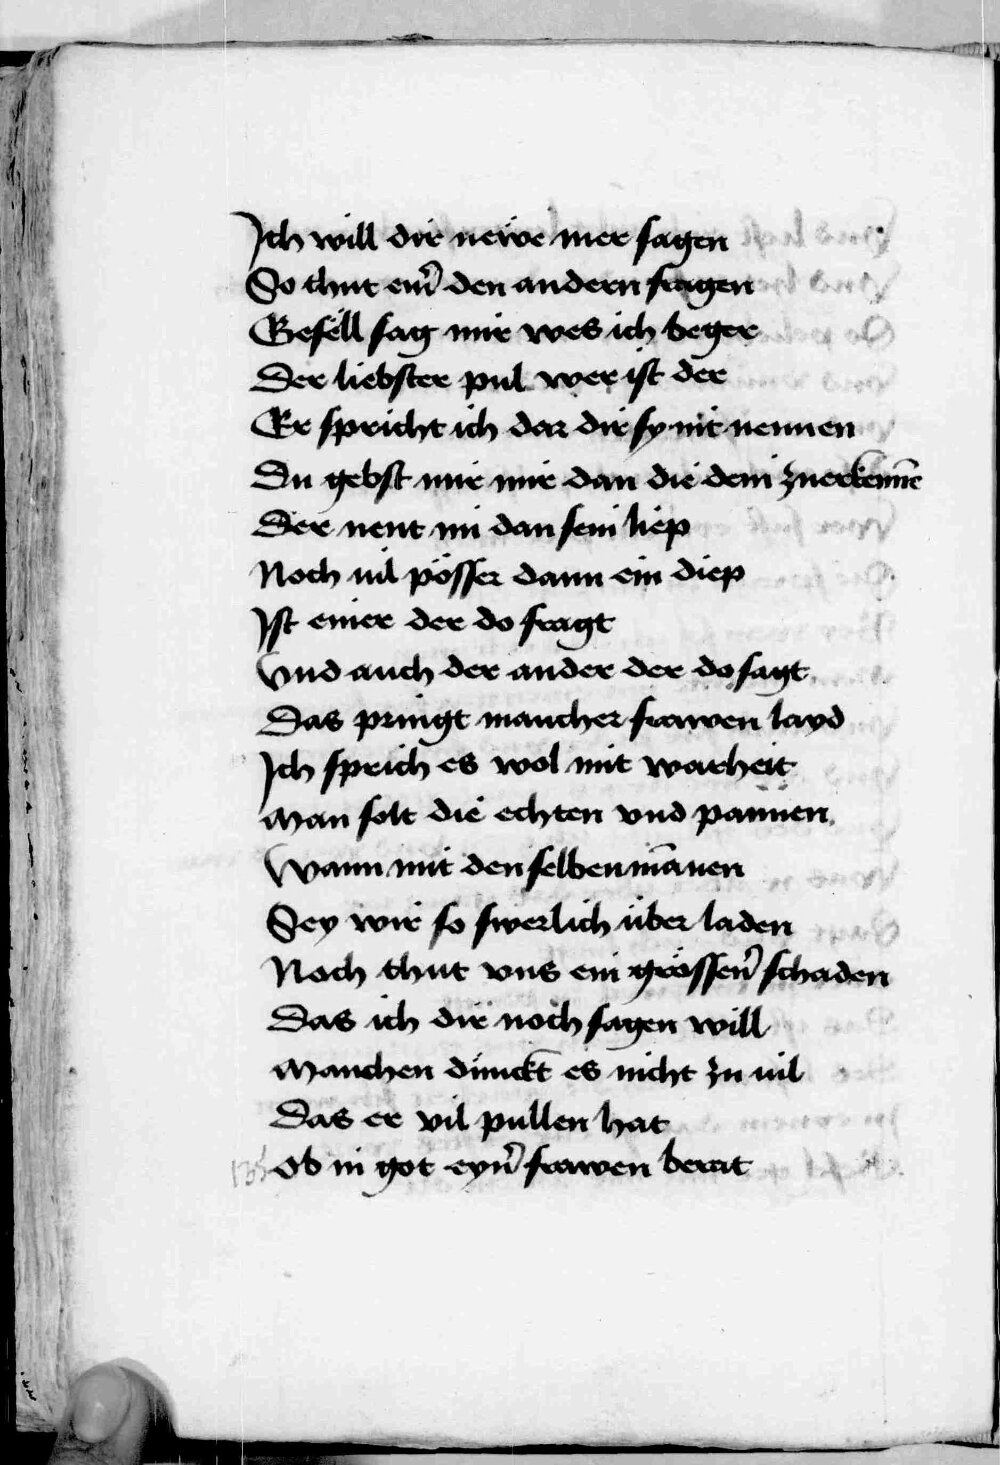 Ich will dir newe mer sagen
So thut eiñ den andern fragen
Gesell sag mir wes ich beger
Der liebster pul wer ist der
Er spricht ich dar dir sy nit nennen
Du gebst mir mir dan die dein zuerkenne
Der nent im dan sein liep
Noch vil pösser dann ein diep
Ist einer der do fragt
Vnd auch der ander der do sagt
Das pringt mancher frawen layd
Ich sprich es wol mit warheit
Man solt die echten vnd pannen
Wann mit den selben mānen
Sey wir so swerlich über laden
Noch thut vns ein grössen̄ schaden
Das ich dir noch sagen will
Manchen dünckt es nicht zu vil
Das er vil pullen hat
135 Ob in got eyn̄ frawen berat